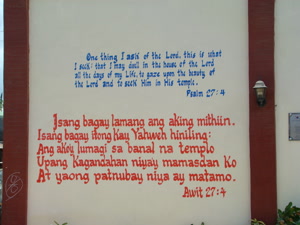 One thing I ask of the Lord, this is what
I seek: that I may dwell in the house of the Lord
all the days of my life, to gaze upon the beauty of
the Lord and to seek Him in His temple.
Psalm 27:4
Isang bagay lamang ang aking mithiin.
Isang bagay itong kay Yahweh hiniling:
Ang ako'y lumagi sa banal na templo
Upang kagandahan niya'y mamasdan ko
At yaong patnubay niya ay matamo.
Awit 27:4